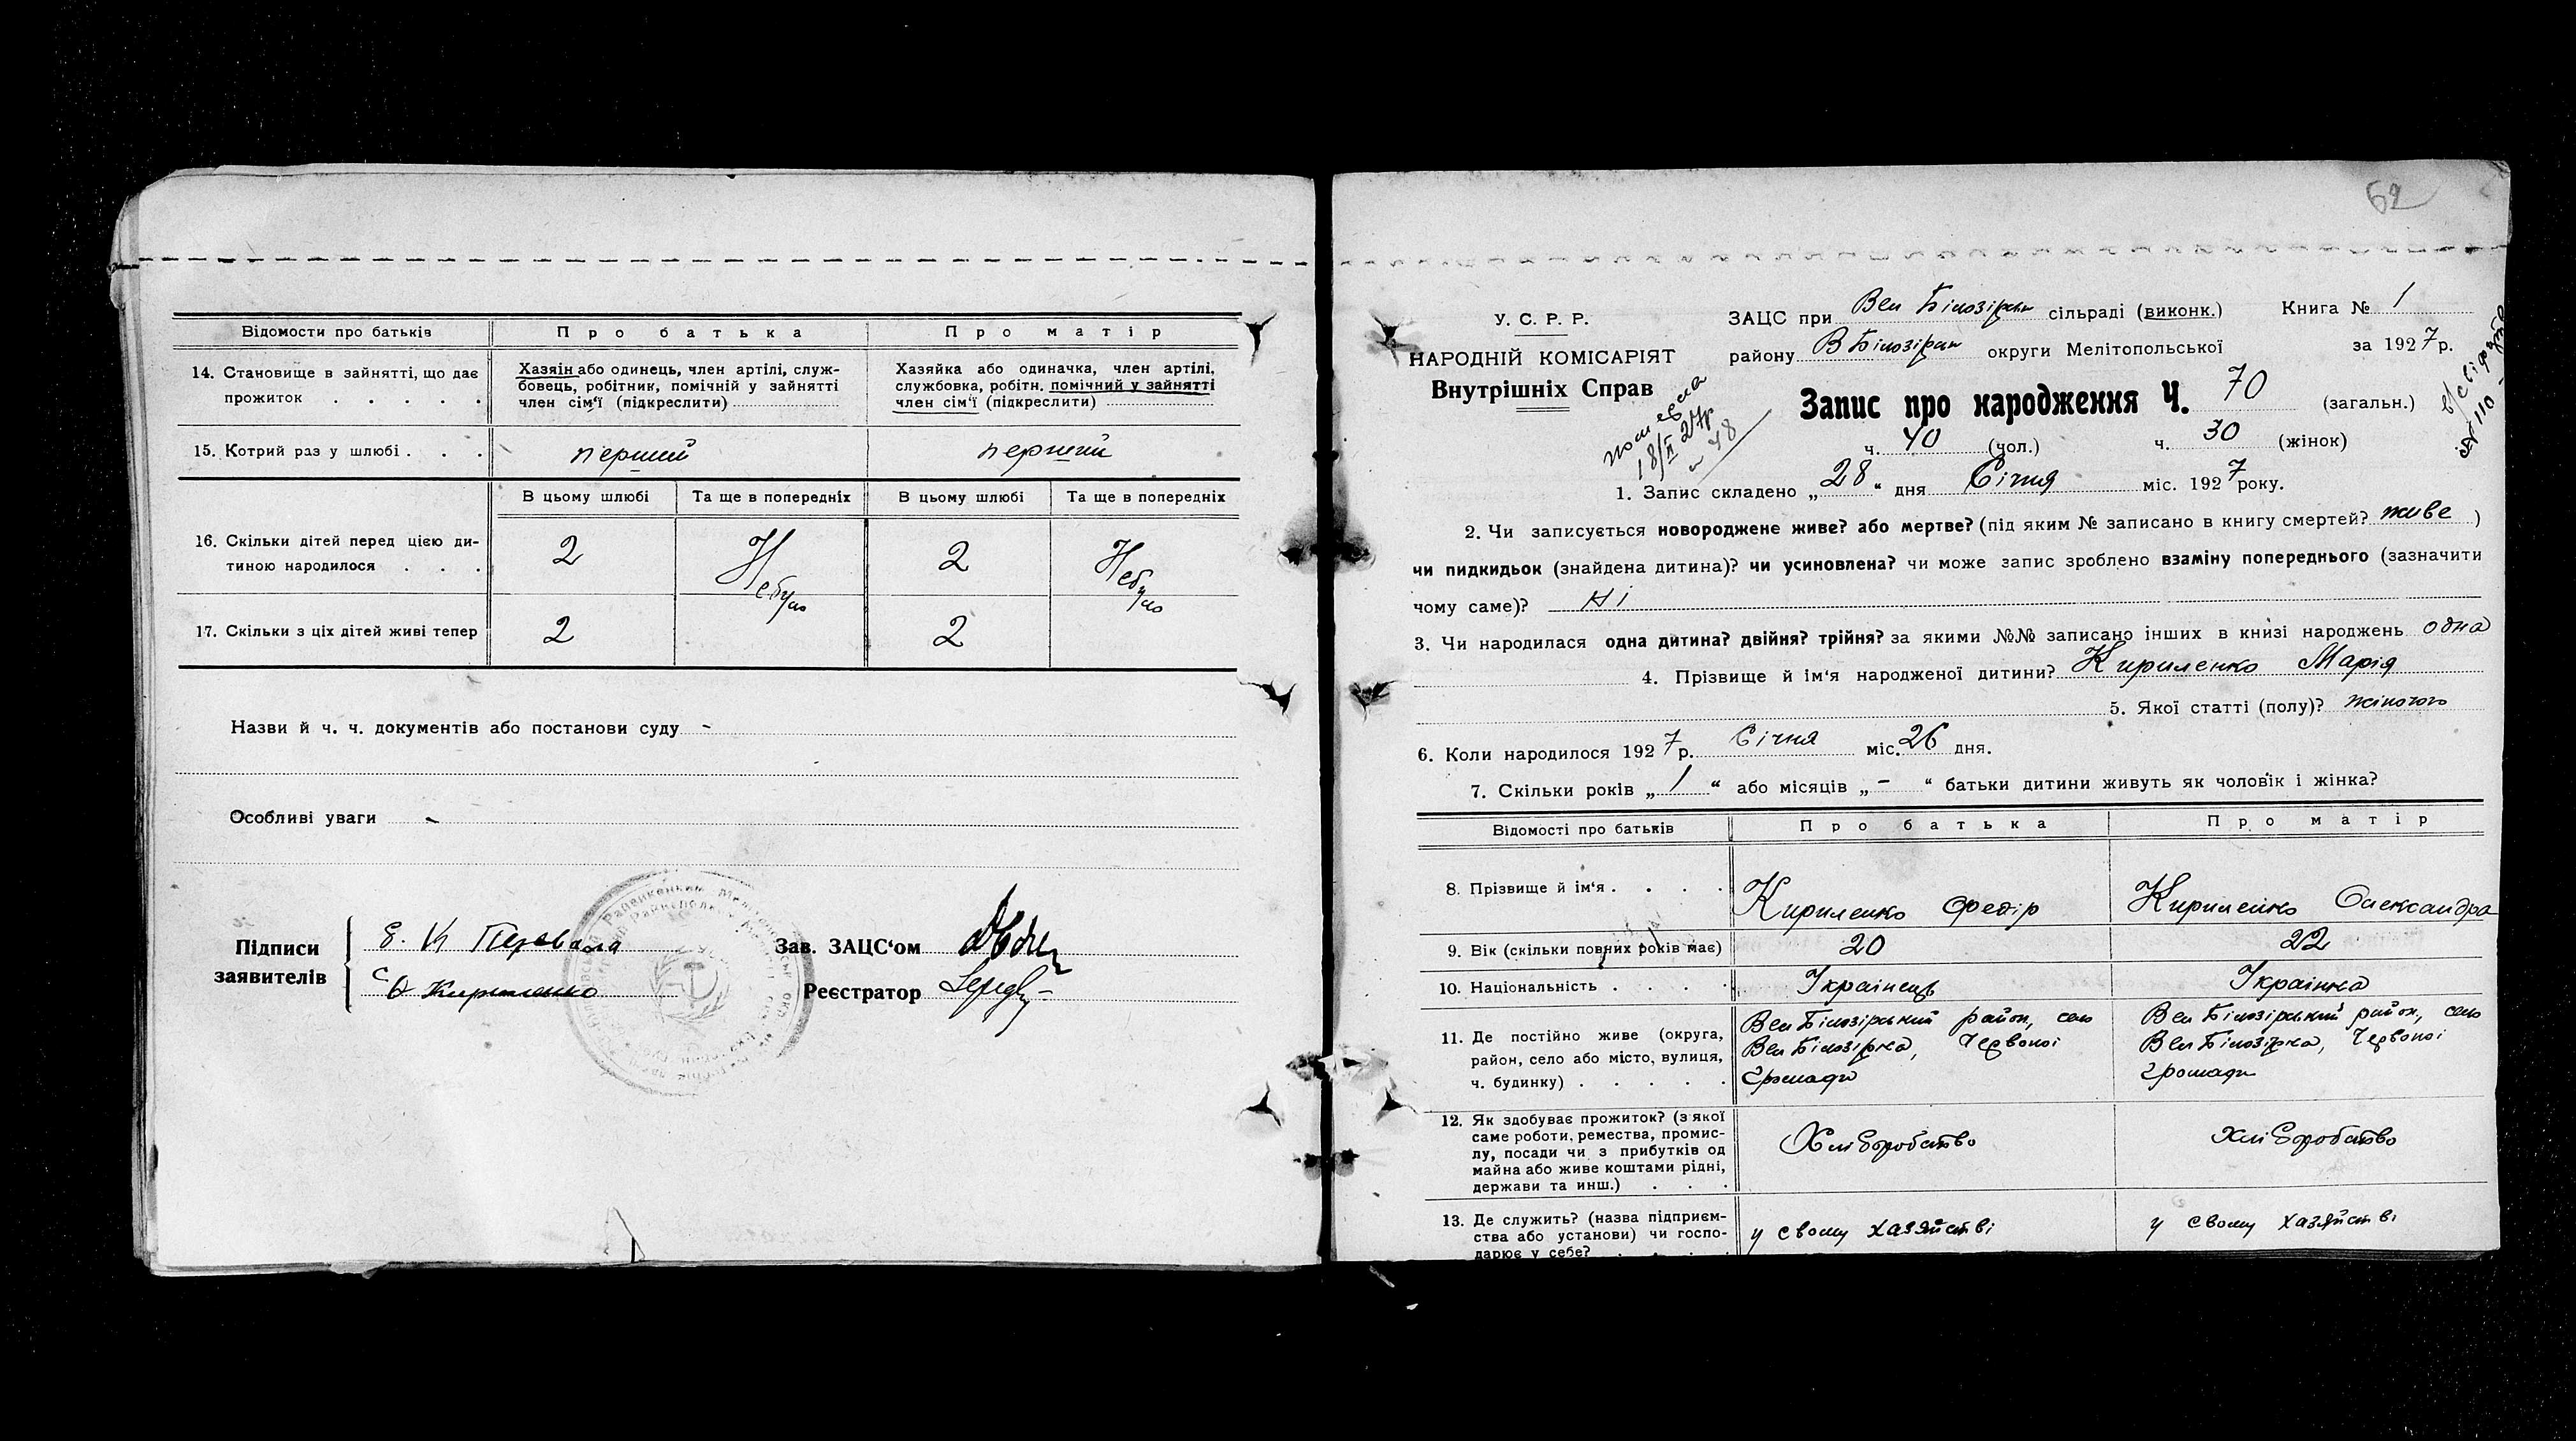 Відомости про батьків Про батька Про матір
14. Становище в зайнятті, що дає прожиток . . . . .
Хазяін або одинець, член артілі, служ-
бовець, робітник, помічній у зайнятті
член сім'ї (підкреслити)
Хазяйка або одиначка, член артілі,
службовка, робітн. помічний у зайнятті
член сім'ї (підкреслити)
15. Котрий раз у шлюбі . . . перший перший
В цьому шлюбі Та ще в попередніх В цьому шлюбі Та ще в попередніх
16. Скільки дітей перед цією ди-
тиною народилося . . . 2 Небуло 2 Небуло
17. Скільки з ціх дітей живі тепер 2 2
Назви й ч. ч. документів або постанови суду -
Особливі уваги -
Підписи
заявителів
Е. К
Кириленко
Зав. ЗАЦС'ом
Реєстратор
62
У. С. Р. Р.
НАРОДНІЙ КОМІСАРІЯТ
Внутрішніх Справ
ЗАЦС при Вел Білозірськ сільраді (виконк.) Книга № 1
району В Білозірськ округи Мелітопольської за 1927 р.
18/II 27р
78
№ 110
Запис про народження Ч. 70 (загальн.)
ч. 40 (чол.) ч. 30 (жінок)
1. Запис складено „ 28 “ дня Січня міс. 1927 року.
2. Чи записується новороджене живе? або мертве? (під яким № записано в книгу смертей? живе )
чи пидкидьок (знайдена дитина)? чи усиновлена? чи може запис зроблено взаміну попереднього (зазначити
чому саме)? Ні
3. Чи народилася одна дитина? двійня? трійня? за якими №№ записано інших в книзі народжень одна
4. Прізвище й ім'я народженої дитини? Кириленко Марія
5. Якої статті (полу)? жіночого
6. Коли народилося 1927 р. Січня міс. 26 дня.
7. Скільки років „ 1 “ або місяців „ - “ батьки дитини живуть як чоловік і жінка?
Відомості про батьків Про батька Про матір
8. Прізвище й ім'я . . . . Кириленко Федір Кириленко Олександра
9. Вік (скільки повних років має) 20 22
10. Національність . . . . Українець Українка
11. Де постійно живе (округа,
район, село або місто, вулиця,
ч. будинку) . . . . .
Вел Білозірський район, село
Вел Білозірка, Червоної
громади
Вел Білозірський район, село
Вел Білозірка, Червоної
громади
12. Як здобуває прожиток? (з якої
саме роботи, ремества, промис-
лу, посади чи з прибутків од
майна або живе коштами рідні,
держави та инш.) . . .
Хліборобство Хліборобство
13. Де служить? (назва підприєм-
ства або установи) чи госпо-
дарює у себе? . . . .
у свому хазяйстві у свому хазяйстві